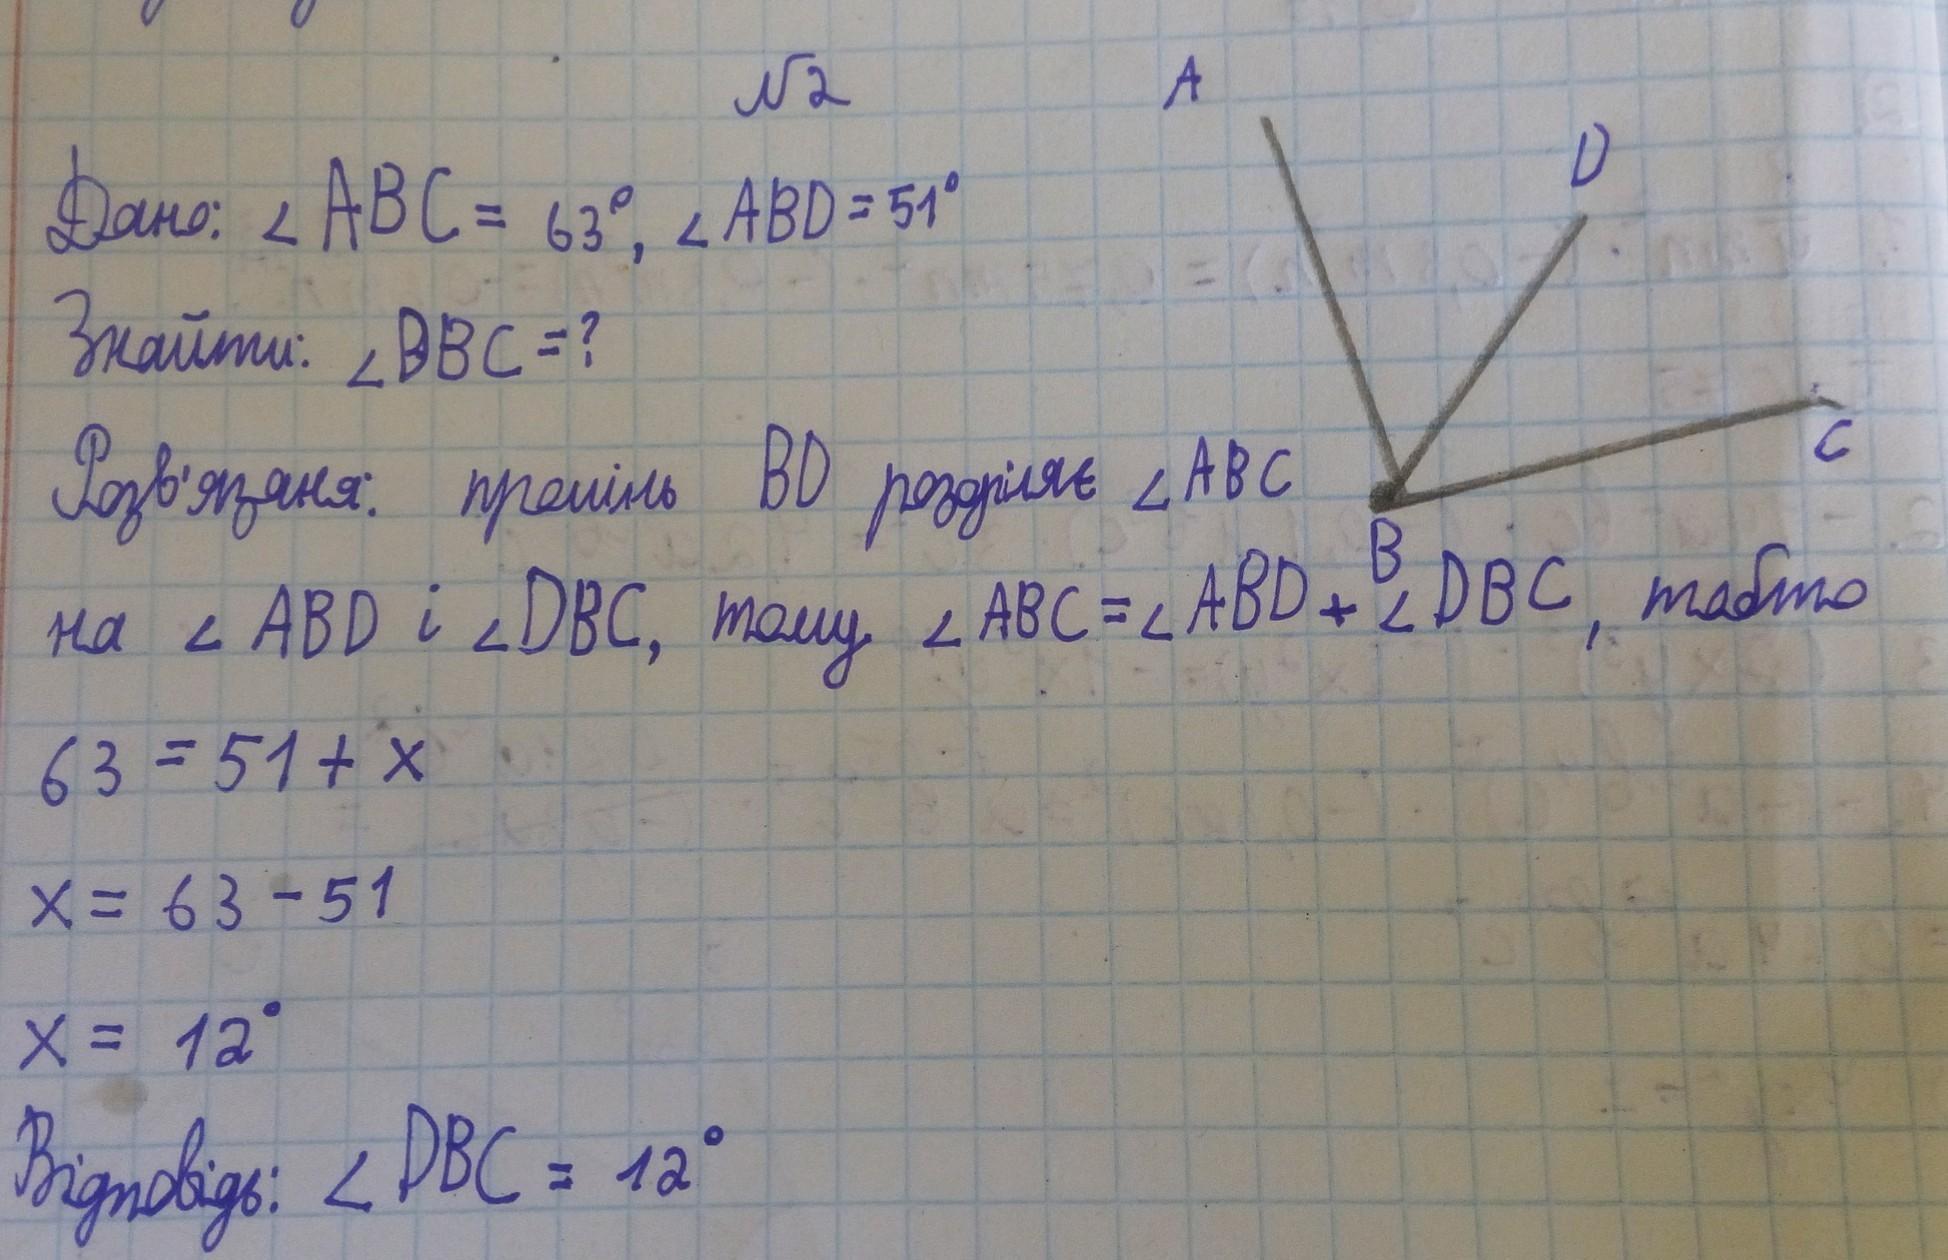 №2
A
D
Дано: ∠ABC = 63°, ∠ABD = 51°
Знайти: ∠DBC = ?
C
Розв'язаня: промінь BD розділяє ∠ABC
B
на ∠ABD і ∠DBC, тому ∠ABC = ∠ABD + ∠DBC, табто
63 = 51 + x
x = 63 - 51
x = 12°
Відповідь: ∠DBC = 12°